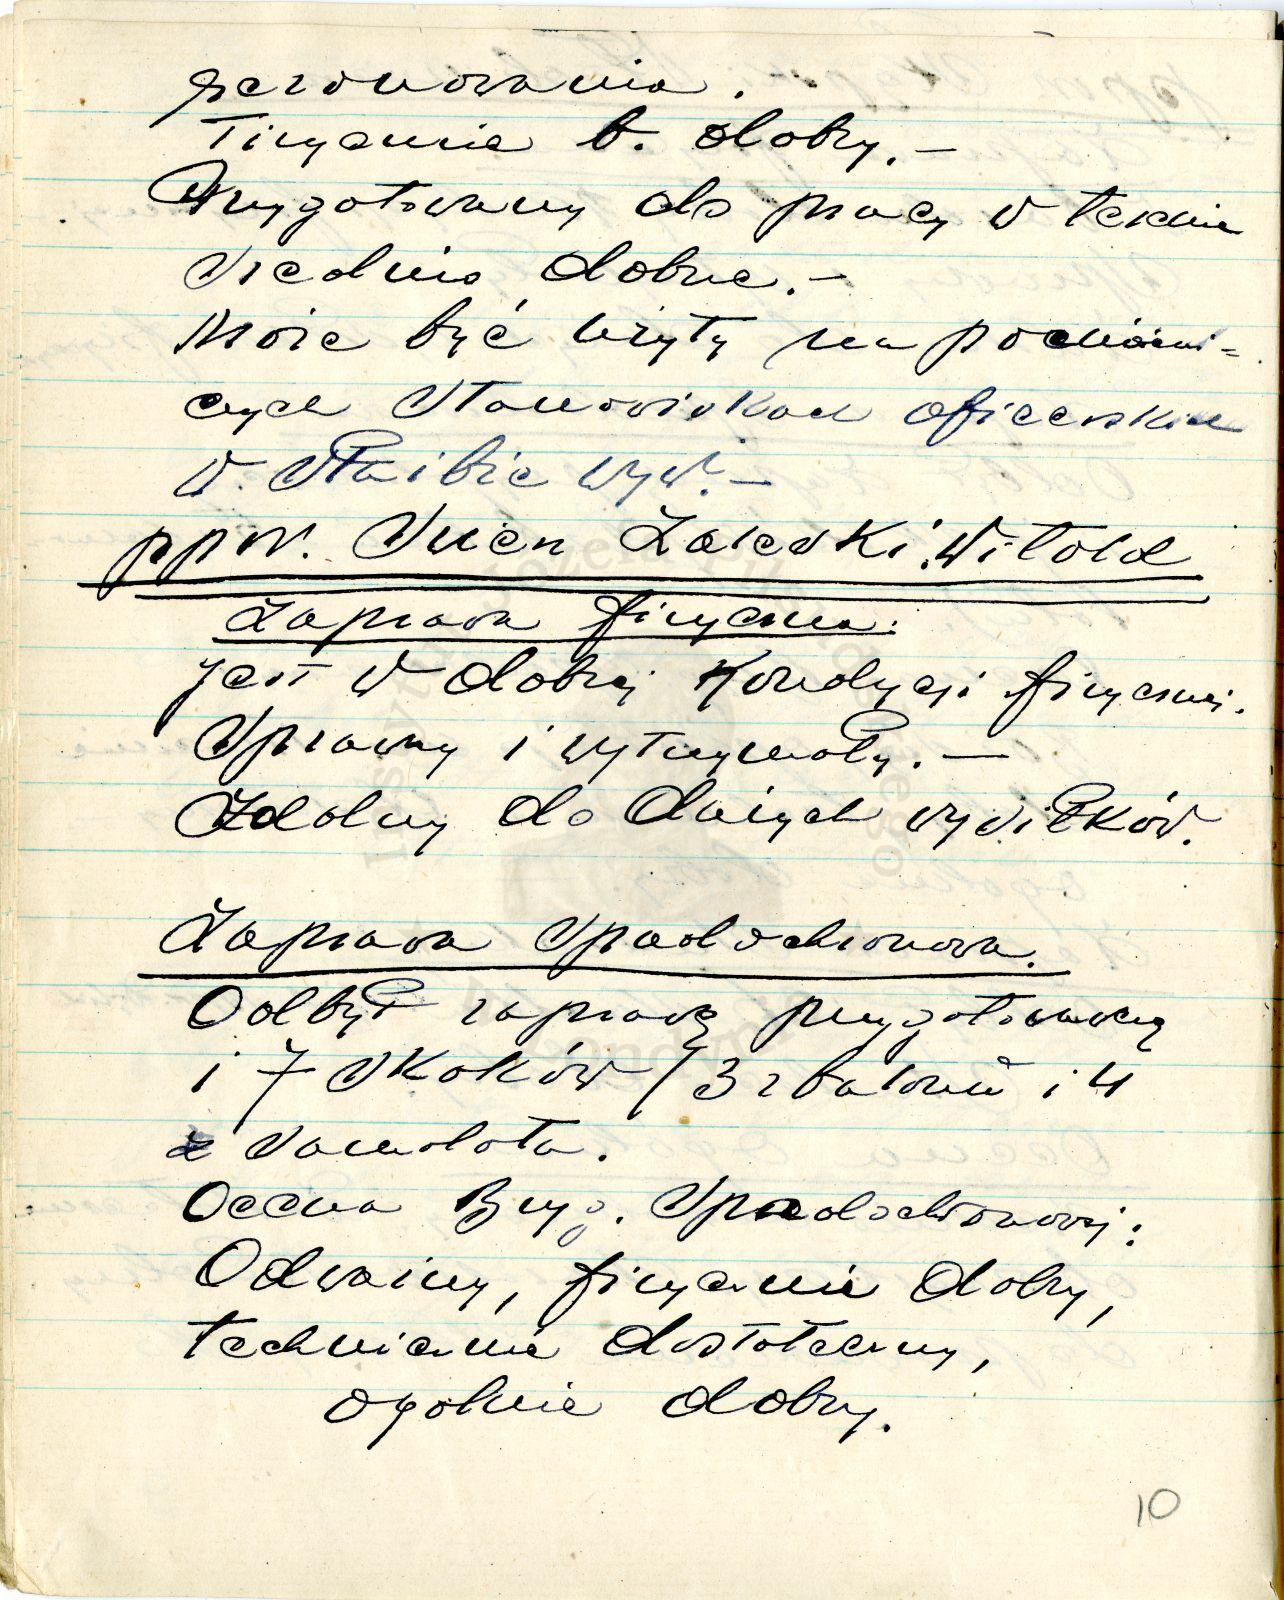 Fizycznie b. dobry.—
Przygotowany do pracy w terenie
średnio dobrze.—
Może być użyty na pomocni=
czych stanowiskach oficerskich
w służbie wyw.—
ppor. Strzałek... Witold
Zaprawa fizyczna:
jest w dobrej kondycji fizycznej.
Sprawny i wytrzymały.—
Zdolny do dużych wysiłków.
Zaprawa spadochronowa.
Odbył zaprawę przygotowawczą
i 7 skoków / 3 z balonu i 4
z samolotu.
Ocena Bryg. Spadochronowej:
Odważny, fizycznie dobry,
technicznie dostateczny,
ogólnie dobry.
10